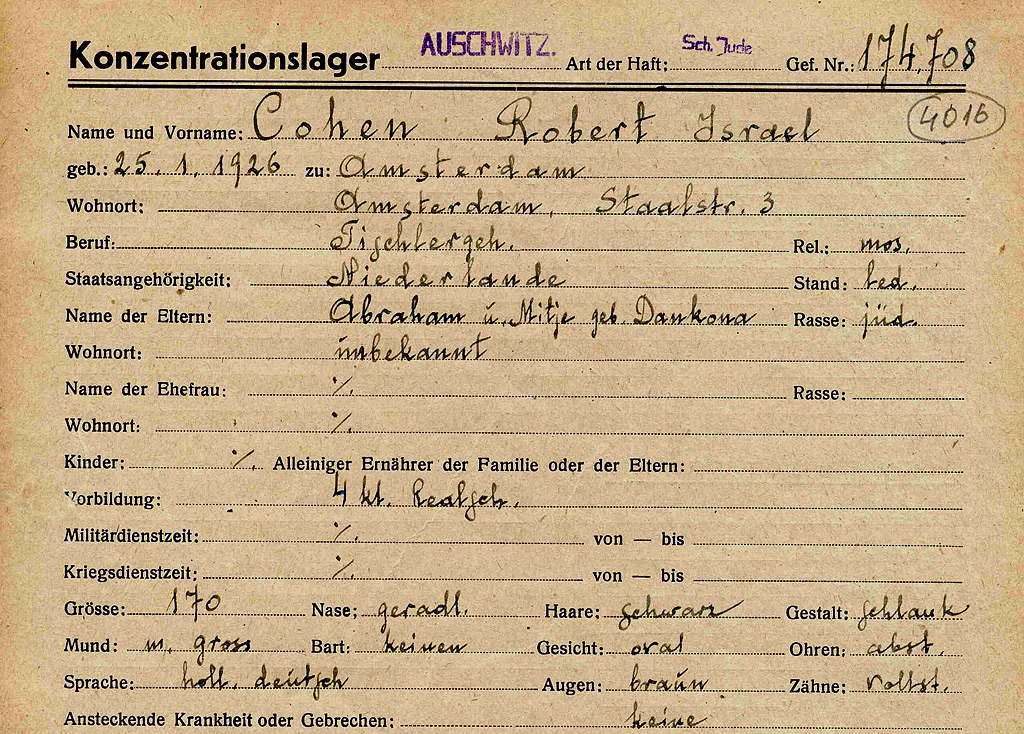 Konzentrationslager AUSCHWITZ. Art der Haft: Sch. Jude Gef. Nr.: 174,708
4016
Name und Vorname: Cohen Robert Israel
geb.: 25. 1. 1926 zu: Amsterdam
Wohnort: Amsterdam, Staalstr. 3
Beruf: Tischlergeh. Rel.: mos.
Staatsangehörigkeit: Niederlande Stand: led.
Name der Eltern: Abraham u. Mitje geb. Dankona Rasse: jüd.
Wohnort: unbekannt
Name der Ehefrau: %. Rasse:
Wohnort: %.
Kinder: %. Alleiniger Ernährer der Familie oder der Eltern:
Vorbildung: 4 kl. Realsch.
Militärdienstzeit: %. von — bis
Kriegsdienstzeit: %. von — bis
Grösse: 170 Nase: geradl. Haare: schwarz Gestalt: schlank
Mund: m. gross Bart: keinen Gesicht: oval Ohren: abst.
Sprache: holl. deutsch Augen: braun Zähne: vollst.
Ansteckende Krankheit oder Gebrechen: keine